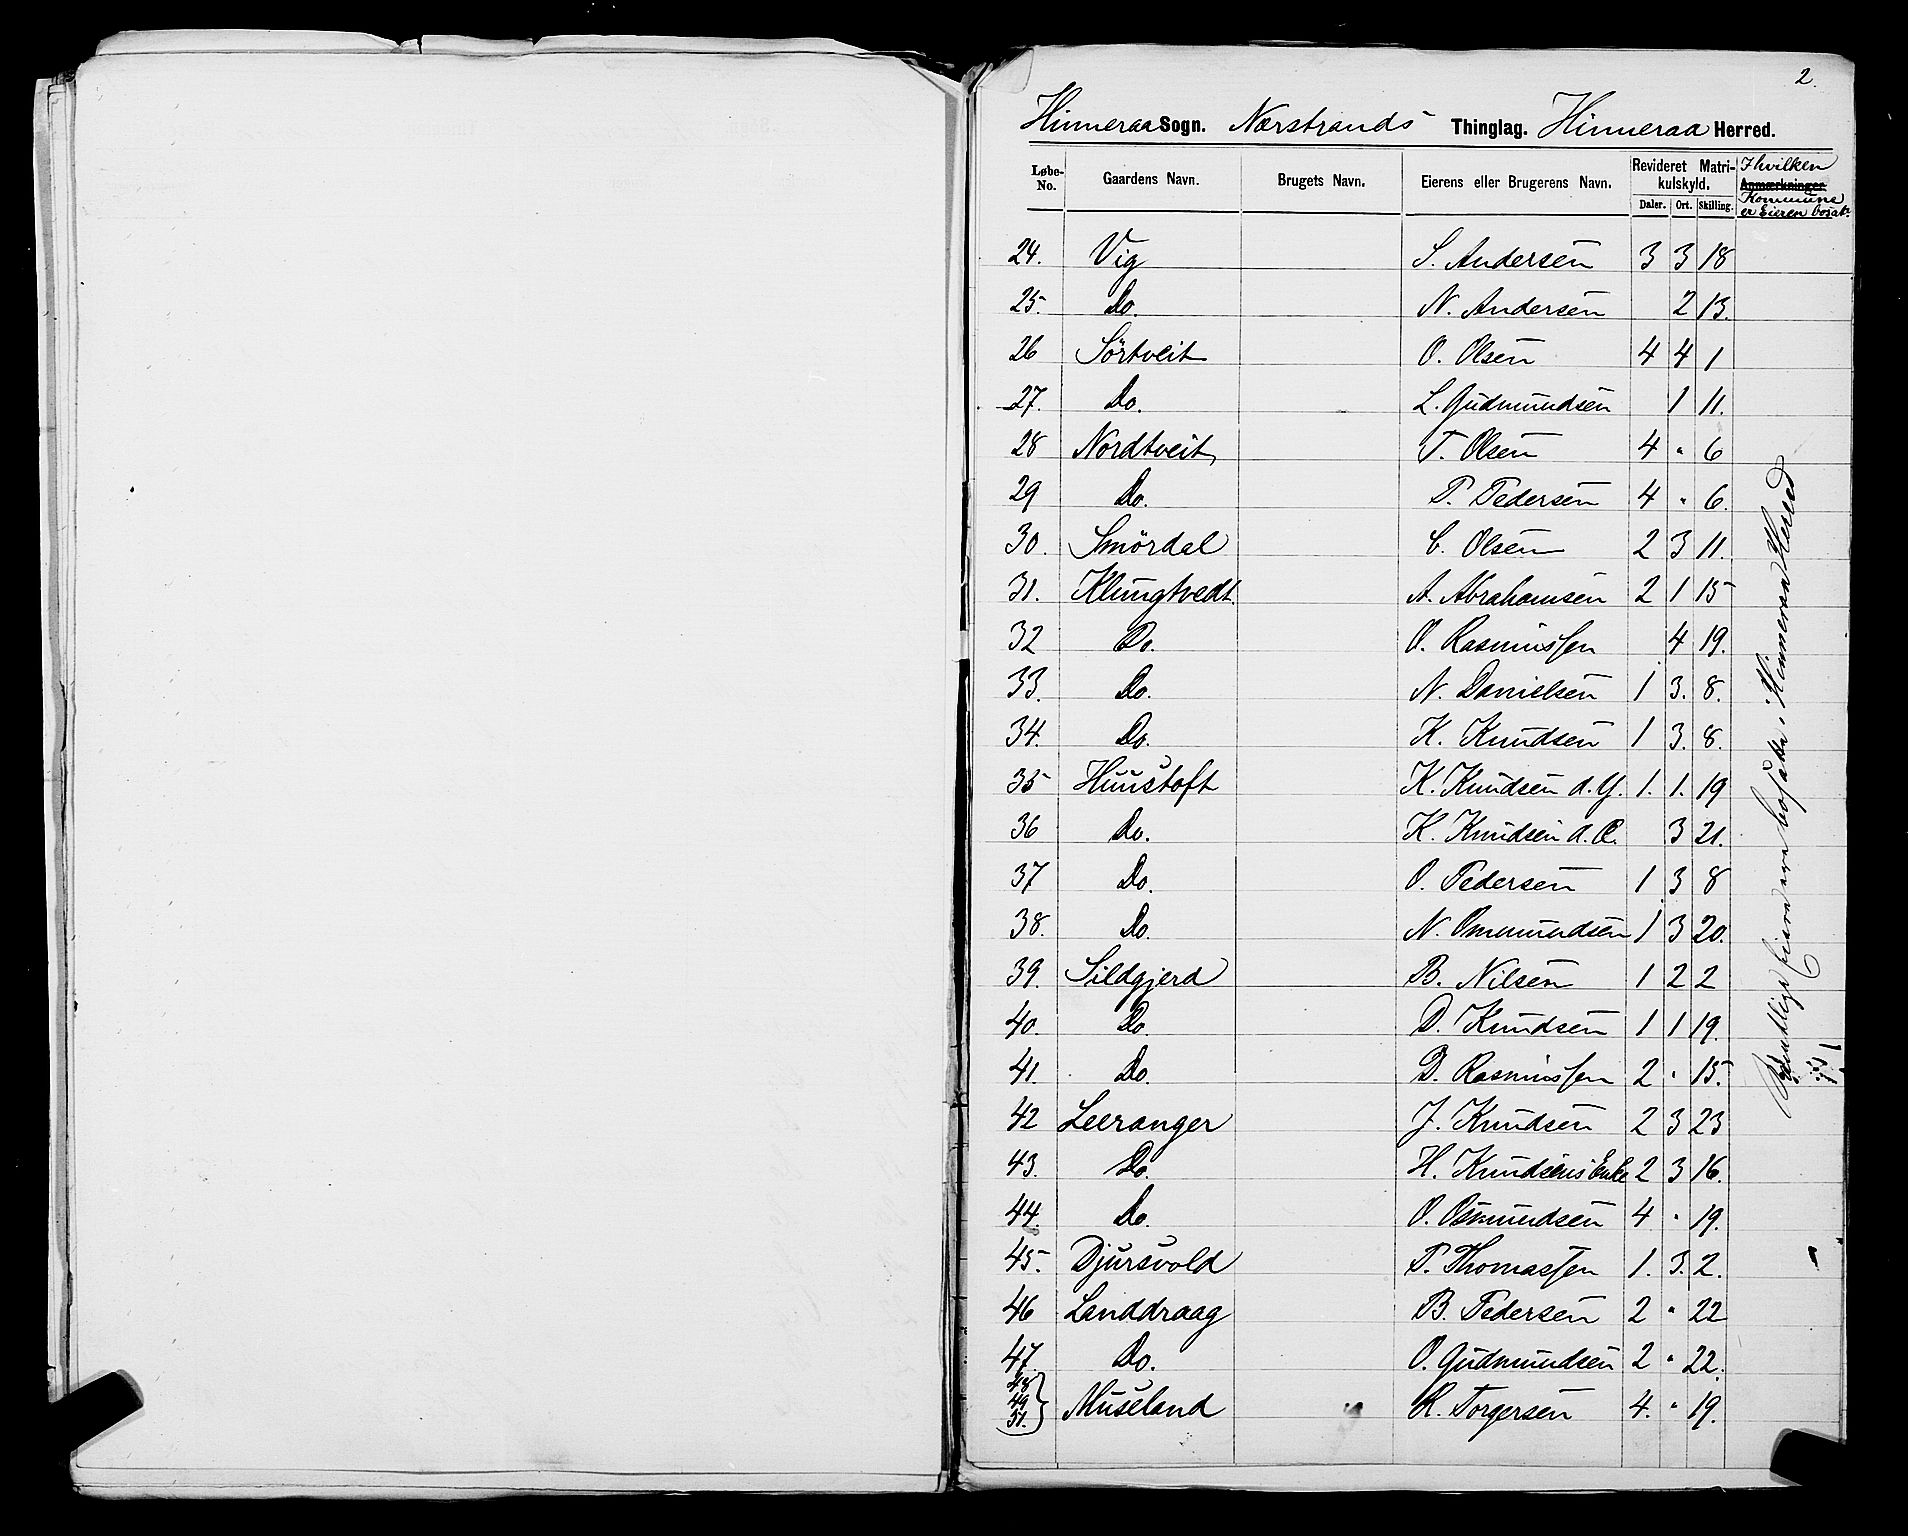 2.
Hinneraa Sogn. Nærstrands Thinglag. Hinneraa Herred.
Løbe-No. Gaardens Navn. Brugets Navn. Eierens eller Brugerens Navn. Revideret Matrikulskyld. Daler. Ort. Skilling. I hvilken Anmærkninger. Kommune er Eieren bosat.
24. Vig S. Andersen 3 3 18
25. Do. N. Andersen 2 13.
26 Sörtveit O. Olsen 4 4 1
27. Do. L. Gudmundsen 1 11.
28 Nordtveit T. Olsen 4 " 6
29 Do. P. Pedersen 4 " 6.
30. Smördal C. Olsen 2 3 11.
31. Klungtvedt. A. Abrahamsen 2 1 15
32 Do. O. Rasmussen 4 19.
33. Do. N. Danielsen 1 3. 8.
34. Do. K. Knudsen 1 3. 8.
35 Huustoft K. Knudsen d. Y. 1. 1. 19
36 Do. K. Knudsen d. Æ. 3 21.
37 Do. O. Pedersen 1 3 8
38. Do. N. Ommundsen 1 3 20.
39. Sildgjerd B. Nilsen 1 2 2
40. Do. D. Knudsen 1 1 19.
41. Do. D. Rasmussen 2 " 15.
42 Leeranger J. Knudsen 2 3 23
43. Do. H. Knudsens Enke 2 3 16.
44. Do. O. Osmundsen 4 " 19.
45. Djursvold P. Thomassen 1. 3. 2.
46 Landdraag B. Pedersen 2 " 22
47. Do. O. Gudmundsen 2 " 22.
48 49 51. Museland R. Torgersen 4. " 19.
Eiere ere bosatte i Hinneraa Herred